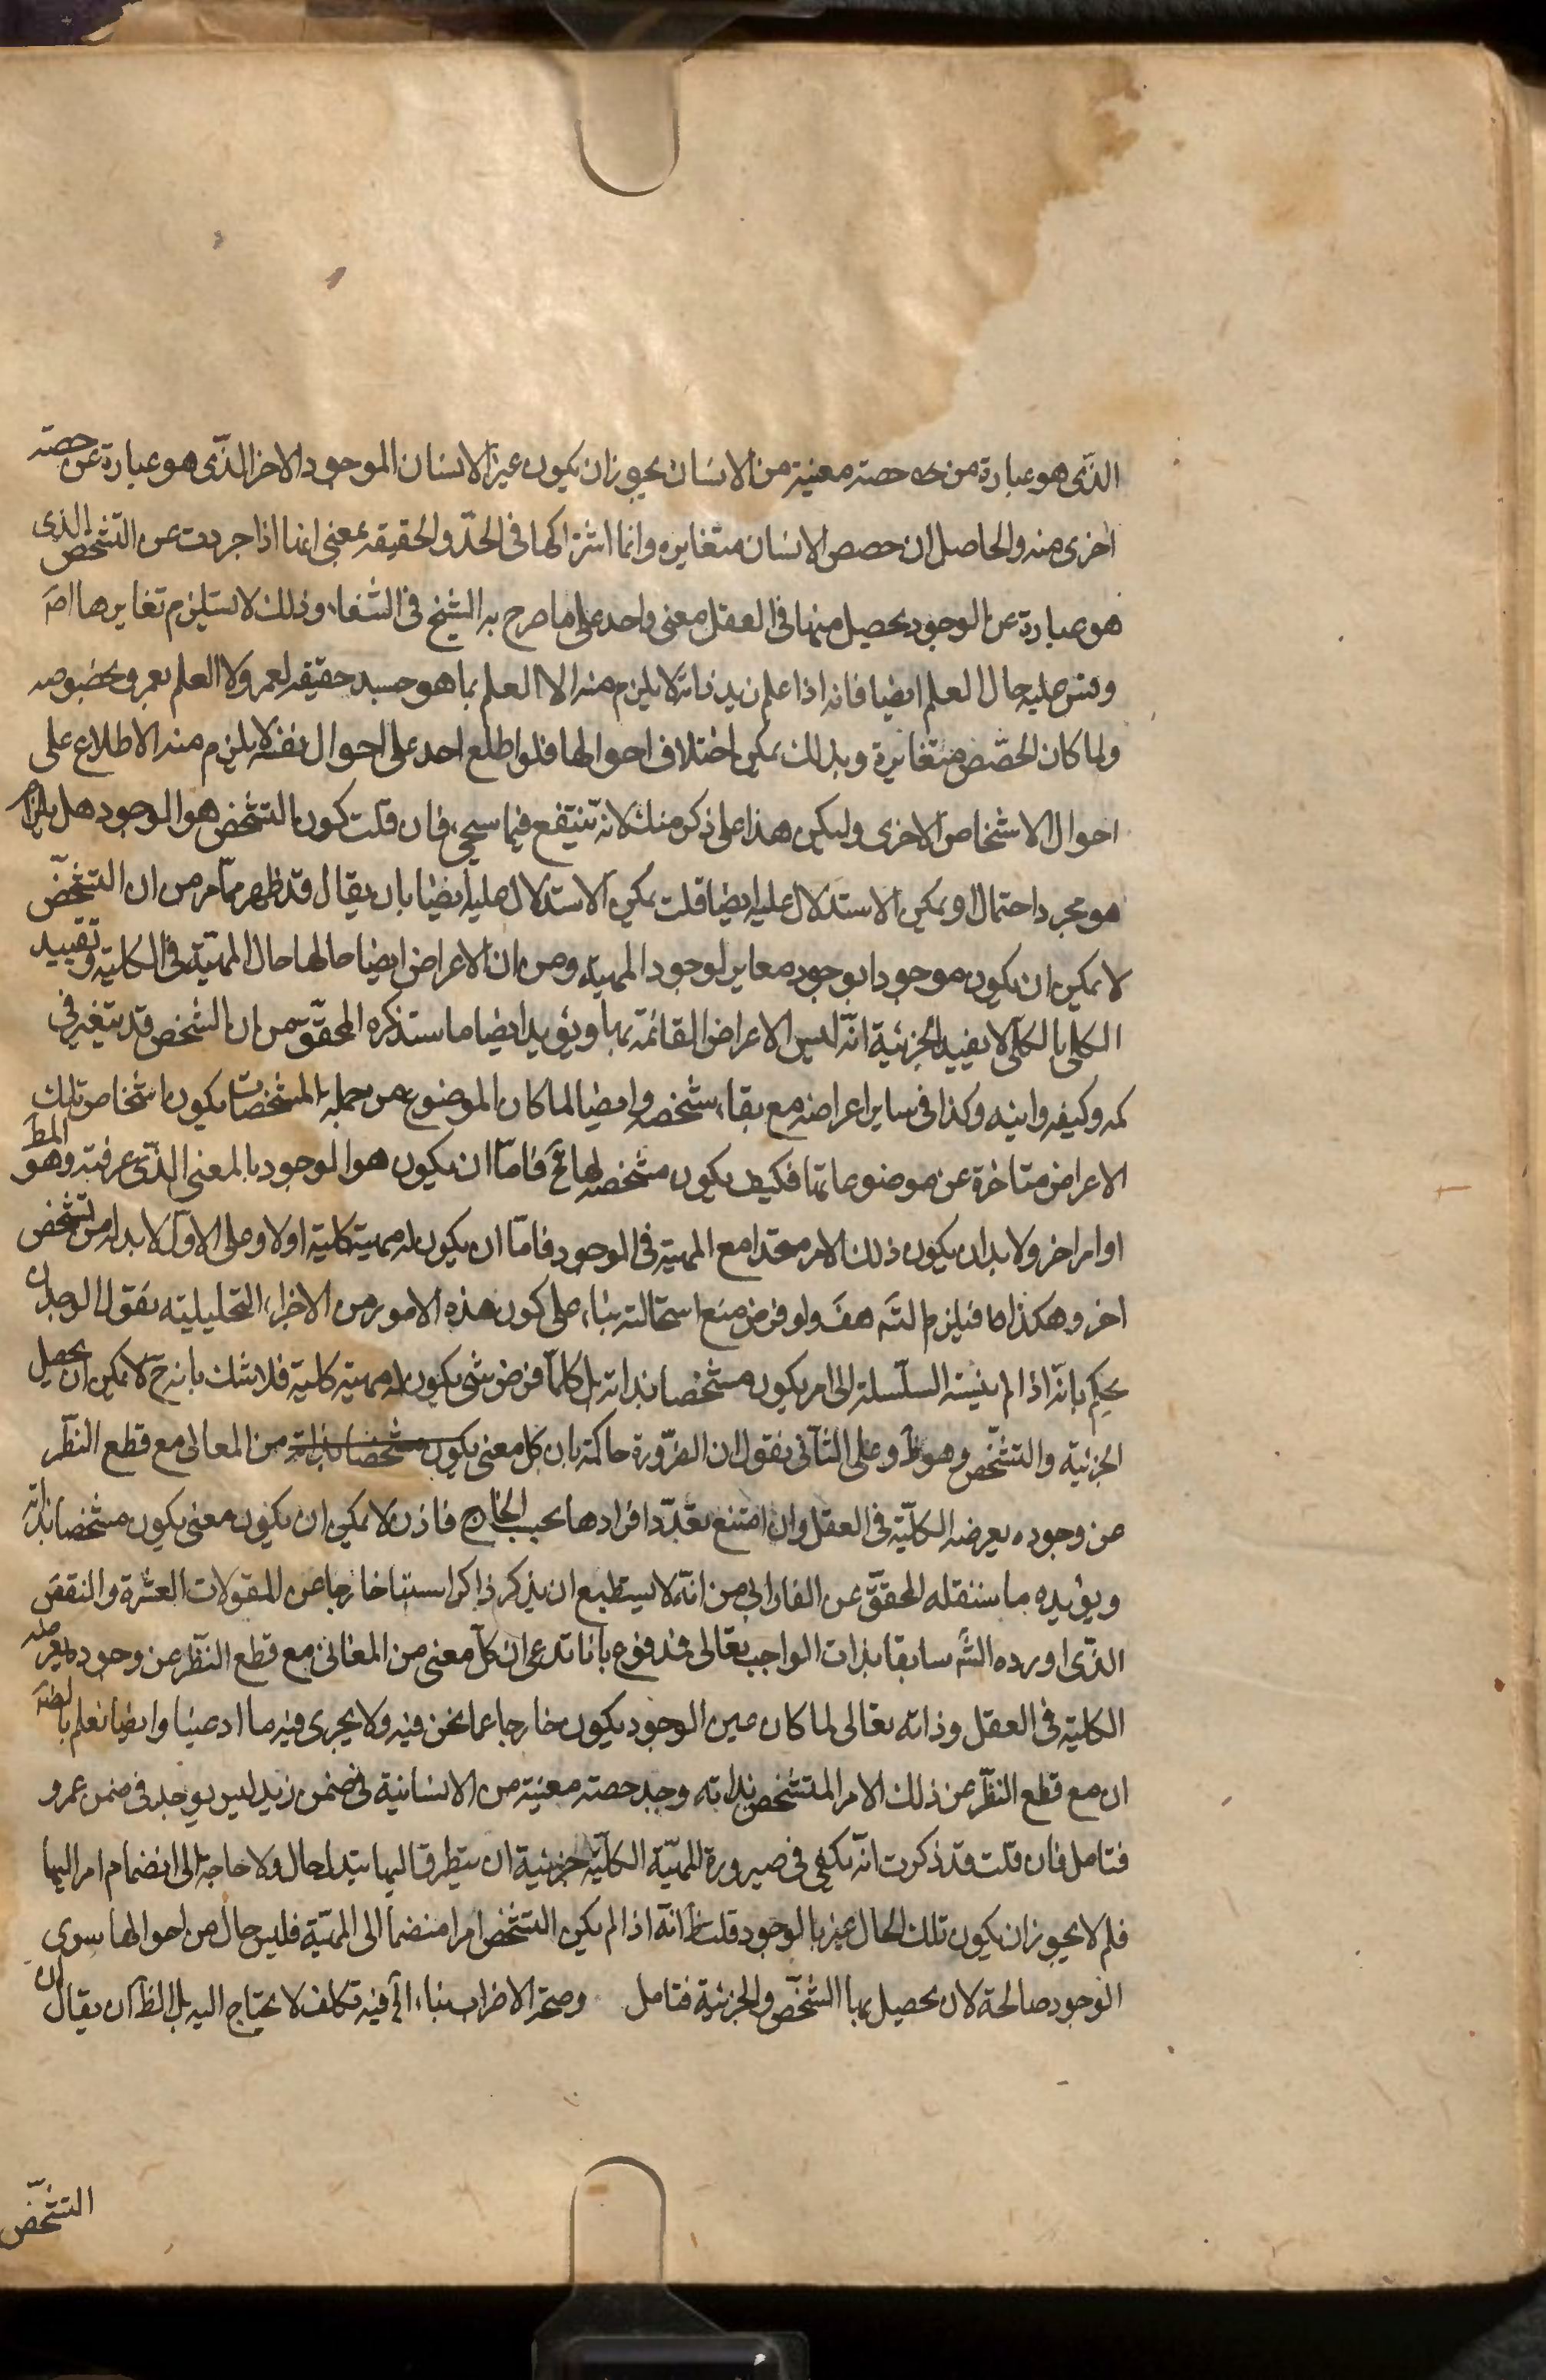 الذى هو عبارة من حصه حصته معنية من الانسان يجوز ان يكون غير الانسان الموجود الاخر الذى هو عبارة عن حصته
اخرى منه والحاصل ان حصص الانسان متغايره وانما اشتراكها فى الحد والحقيقه بمعنى انها اذا جردت عن التشخص الذى
هو عبارة عن الوجود يحصل منها فى العقل معنى واحد على ما صرح به الشيخ فى الشفاء وذلك لا يستلزم تغايرها اصَ
وقس عليه حال العلم ايضا فانه اذا علم زيد ذاته لا يلزم منه الا العلم بما هو حسب حقيقه لعمرو لا العلم بعمرو بخصوصه
ولما كان الحصص متغايرة وبذلك يمكن اختلاف احوالها فلو اطلع احد على احوال نفسه لا يلزم منه الاطلاع على
احوال الاشخاص الاخرى وليكن هذا على ذكر منك لانه تنتفع فيما سيجئ فان قلت كون التشخص هو الوجود هل
هو مجرد احتمال او يمكن الاستدلال عليه ايضا قلت يمكن الاستدلال عليه ايضا بان يقال قد ظهر مما مر من ان التشخص
لا يمكن ان يكون موجودا بوجود مغاير لوجود المهية ومن ان الاعراض ايضا حالها حال المهية فى الكلية وتقييد
الكلى بالكلى لا يفيد الجزئية انه ليس الاعراض القائمة بها ويؤيد ايضا ما ستذكره المحقق من ان الشخص قد يتغير فى
كمه وكيفه واينه وكذا فى ساير اعراضه مع بقاء شخصه وايضا لما كان الموضوع من جملة المشخصات يكون اشخاص تلك
الاعراض متاخرة عن موضوعاتها فكيف يكون مشخصه لها فامّا ان يكون هو الوجود بالمعنى الذى عرفته وهو المط
او امر اخر ولا بد ان يكون ذلك الامر متحدا مع المهية فى الوجود فامّا ان يكون له مهية كلية اولا وعلى الاول لا بد له من تشخص
اخر وهكذا فيلزم التسَ هفَ ولو فرض منع استحالته بناء على كون هذه الامور من الاجزاء التحليلية نقول الوجدان
يحكم بانه اذا لم ينته السلسلة الى امر يكون مشخصا بذاته بل كلما فرض شئ يكون له مهية كلية فلا شك بانه ح لا يمكن ان يحصل
الجزئية والتشخص وهو ظ وعلى الثانى نقول ان الضرورة حاكمة بان كل معنى يكون مشخصا بذاته من المعانى مع قطع النظر
من وجوده يعرضه الكلية فى العقل وان امتنع تعدد افرادها بحسب الخارج فاذن لا يمكن ان يكون معنى يكون مشخصا بذاته
ويؤيده ما سننقله المحقق عن الفارابى من انه لا يستطيع ان يذكر ذاكر استا خارجا من المقولات العشرة والنقض
الذى اورده الشَ سابقا بذات الواجب تعالى مندفوع بانا ندعى ان كل معنى من المعانى مع قطع النظر عن وجوده يعرضه
الكلية فى العقل وذاته تعالى لما كان عين الوجود يكون خارجا عما نحن فيه ولا يجرى فيه ما ادعينا وايضا نعلم
ان مع قطع النظر عن ذلك الامر المتشخص بذاته وجد حصته معنية من الانسانية فى ضمن زيد ليس يوجد فى ضمن عمرو
فتامل فان قلت قد ذكرت انه يكفى فى صيرورة المهية الكلية جزئية ان يتطرق اليها تبدل حال ولا حاجة الى انضمام امر اليها
فلم لا يجوز ان يكون تلك الحال غير الوجود قلت انه اذا لم يكن التشخص امرا منضما الى المهية فليس حال من احوالها سوى
الوجود صالحة لان يحصل بها الشخص والجزئية فتامل وصحة الاضراب بناء الخ فيه تكلف لا يحتاج اليه بل الظ ان يقال ان
التشخص